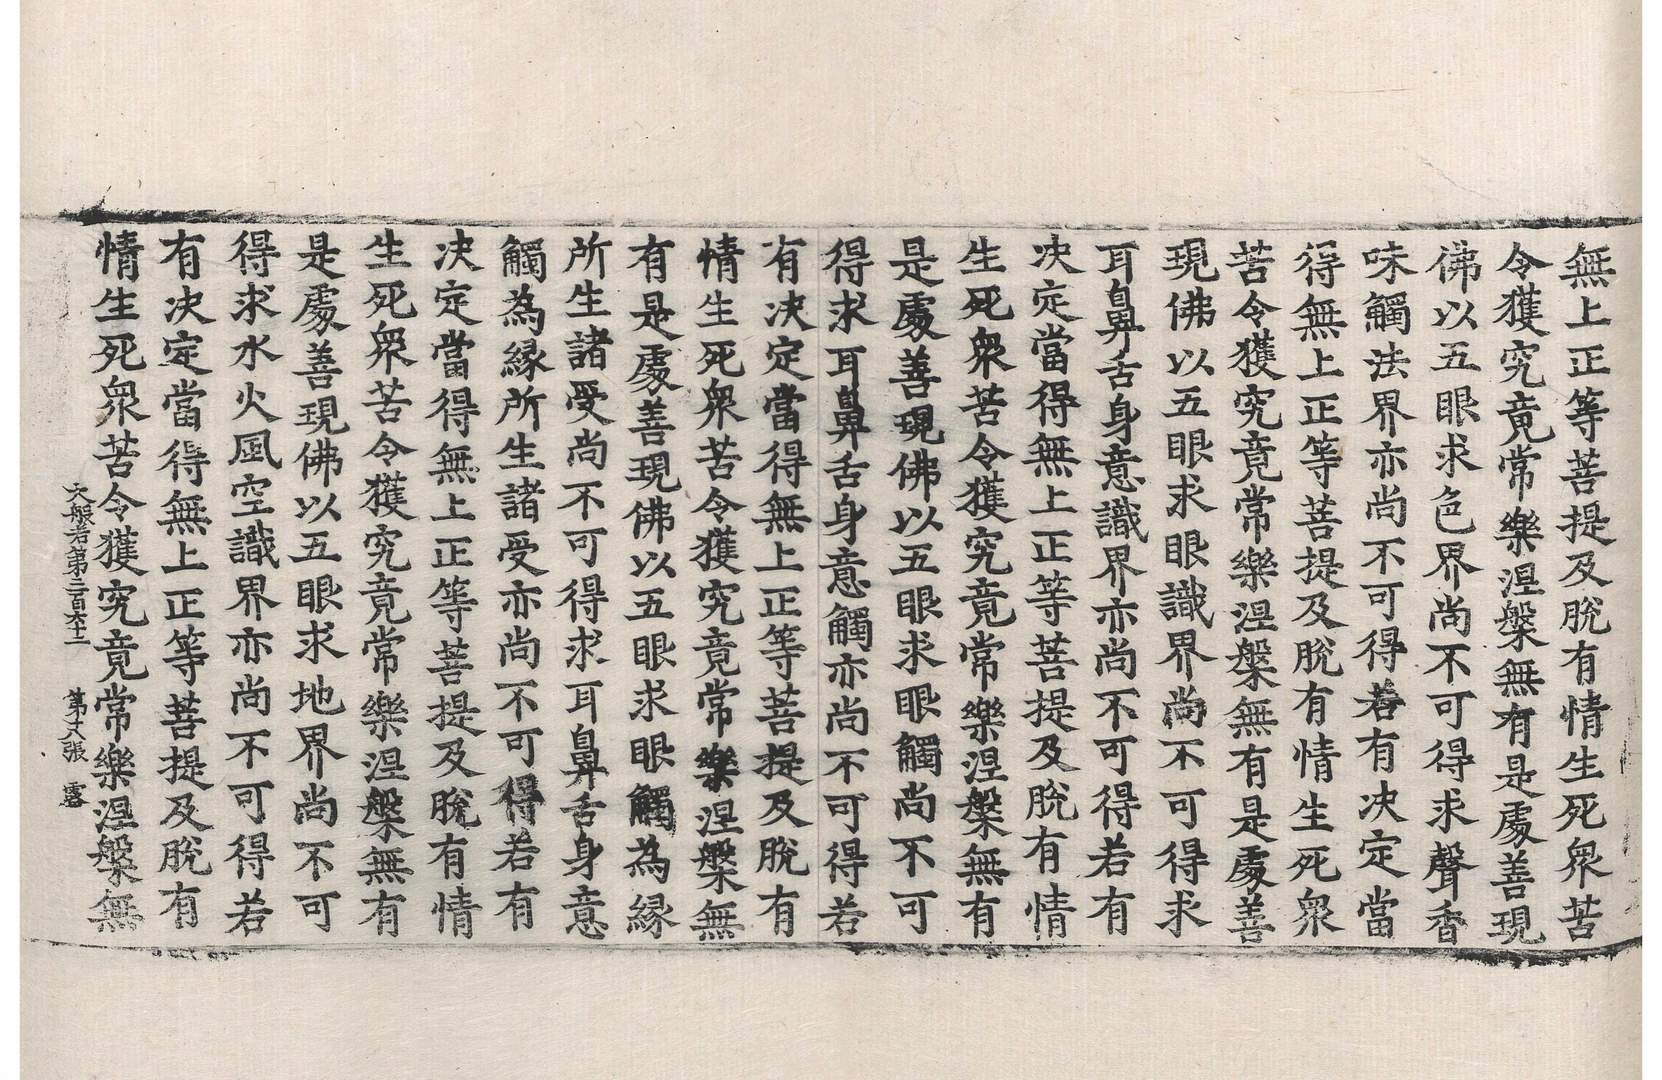 無上正等菩提及脫有情生死衆苦
令獲究竟常樂涅槃無有是處善現
佛以五眼求色界尚不可得求聲香
味觸法界亦尚不可得若有决定當
得無上正等菩提及脫有情生死衆
苦令獲究竟常樂涅槃無有是處善
現佛以五眼求眼識界尚不可得求
耳鼻舌身意識界亦尚不可得若有
决定當得無上正等菩提及脫有情
生死衆苦令獲究竟常樂涅槃無有
是處善現佛以五眼求眼觸尚不可
得求耳鼻舌身意觸亦尚不可得若
有决定當得無上正等菩提及脫有
情生死衆苦令獲究竟常樂涅槃無
有是處善現佛以五眼求眼觸為緣
所生諸受尚不可得求耳鼻舌身意
觸為緣所生諸受亦尚不可得若有
决定當得無上正等菩提及脫有情
生死衆苦令獲究竟常樂涅槃無有
是處善現佛以五眼求地界尚不可
得求水火風空識界亦尚不可得若
有决定當得無上正等菩提及脫有
情生死衆苦令獲究竟常樂涅槃無
大般若第三百六十二 第十八張